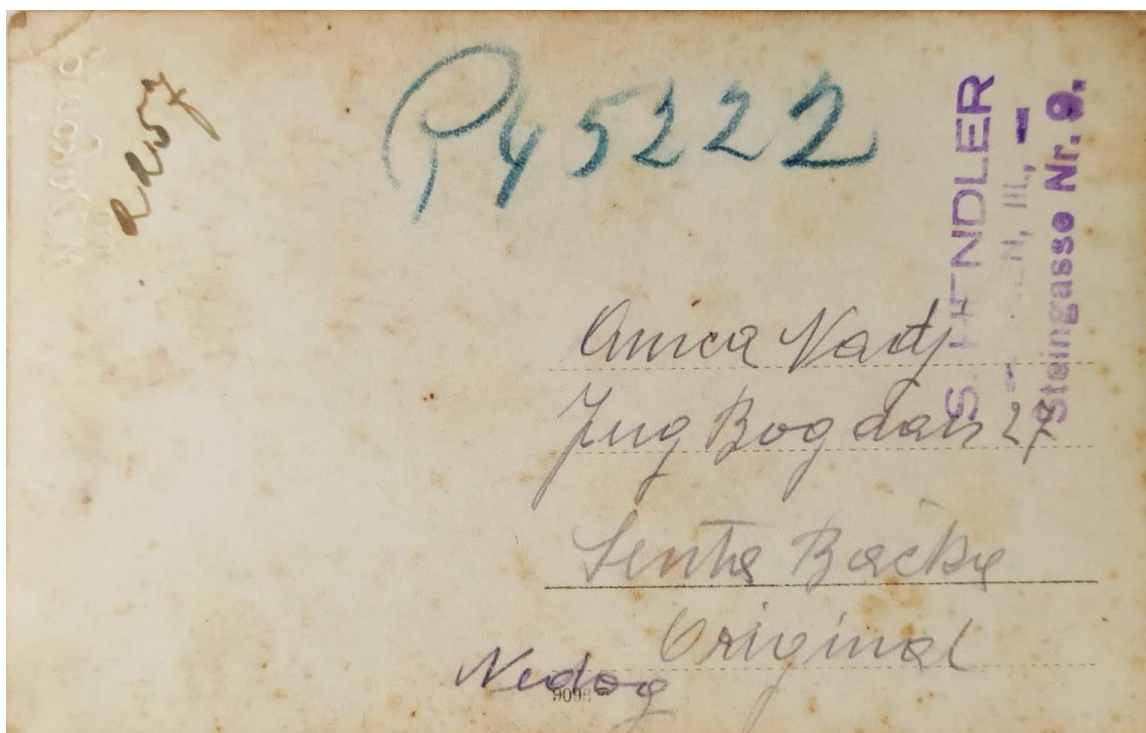 45222
S. HENDLER
III.,
Steingasse Nr. 9.
Anica Nadj
Jug Bogdan 27
Senta Bačka
Original
909